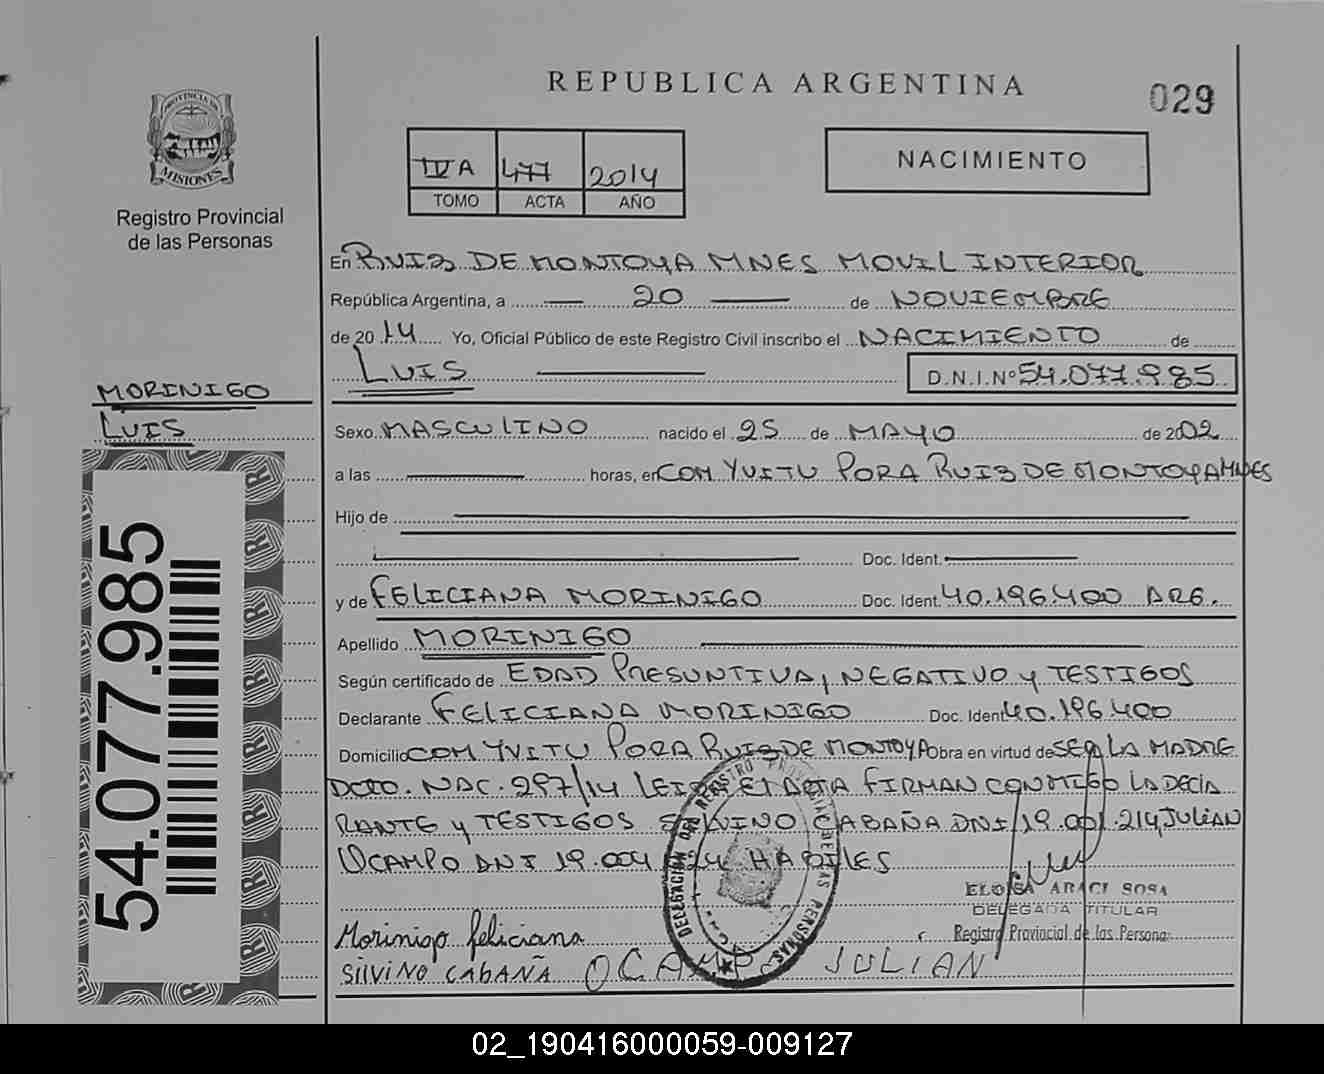 REPUBLICA ARGENTINA
029
PROVINCIA DE
MISIONES
Registro Provincial
de las Personas
IV A 477 2014
TOMO ACTA AÑO
NACIMIENTO
En RUIZ DE MONTOYA MNES MOVIL INTERIOR
República Argentina, a 20 de NOVIEMBRE
de 2014 Yo, Oficial Público de este Registro Civil inscribo el NACIMIENTO de
LUIS D.N.I.Nº 54.077.985
MORINIGO
LUIS
Sexo MASCULINO nacido el 25 de MAYO de 2002
a las horas, en COM YVITU PORA RUIZ DE MONTOYA MNES
Hijo de
Doc. Ident.
y de FELICIANA MORINIGO Doc. Ident. 40.196.400 ARG.
Apellido MORINIGO
Según certificado de EDAD PRESUNTIVA, NEGATIVO y TESTIGOS
Declarante FELICIANA MORINIGO Doc. Ident 40.196.400
Domicilio COM YVITU PORA RUIZ DE MONTOYA Obra en virtud de SER LA MADRE
DCTO. NAC. 297/14 LEIDA EL ACTA FIRMAN CONMIGO LA DECLA
RANTE y TESTIGOS SILVINO CABAÑA DNI 19.001.214, JULIAN
OCAMPO DNI 19.004 24 HABILES
ELOISA ARACI SOSA
DELEGADA TITULAR
Registro Provincial de las Personas
Morinigo feliciana
SilviNO CABAÑA OCAMPO JULIAN
54.077.985
02_190416000059-009127